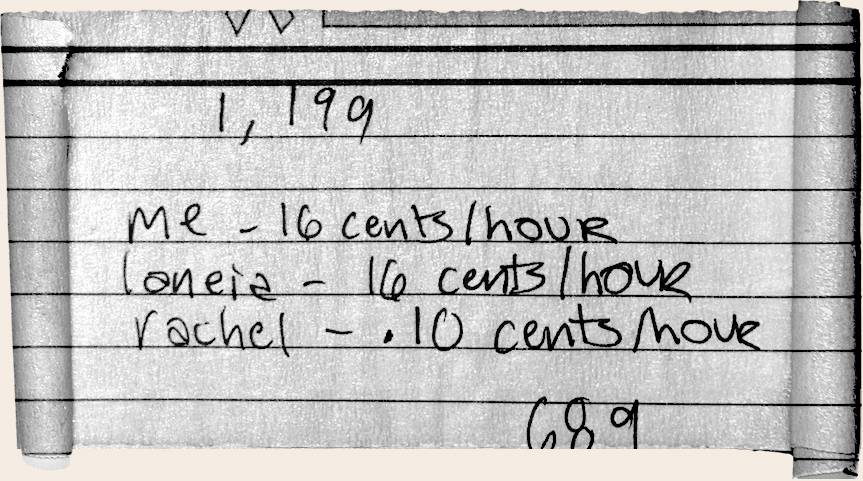 1,199
me - 16 cents/hour
loneia - 16 cents/hour
rachel - .10 cents/hour
689